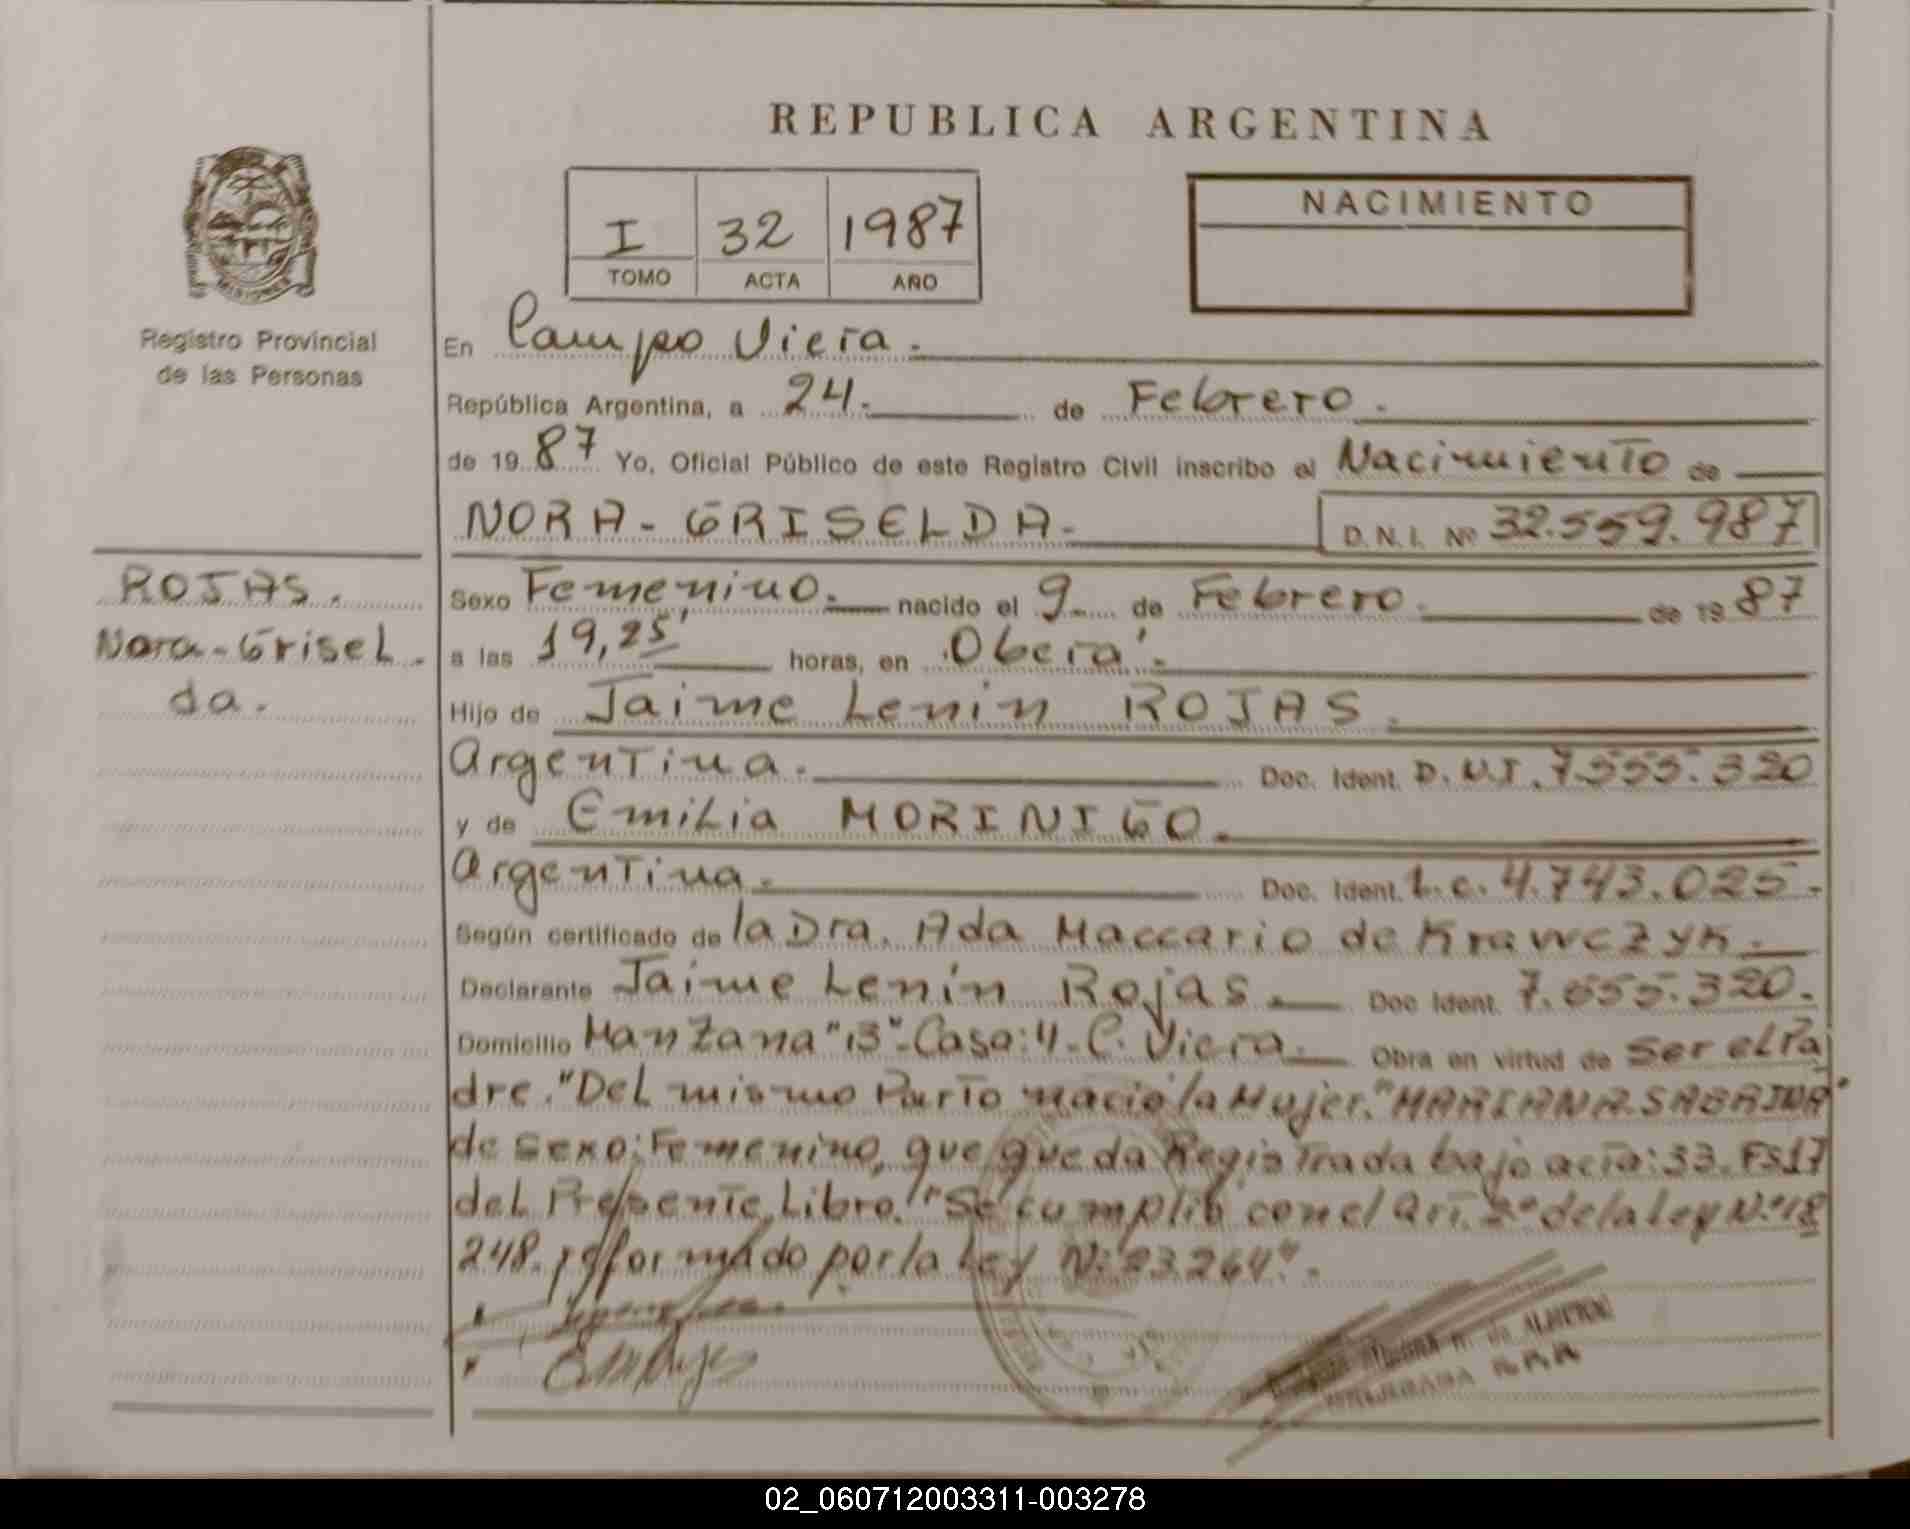 REPUBLICA ARGENTINA
I 32 1987
TOMO ACTA AÑO
NACIMIENTO
MISIONES
Registro Provincial
de las Personas
En Campo Viera.
República Argentina, a 24. de Febrero.
de 19 87 Yo, Oficial Público de este Registro Civil inscribo el Nacimiento de
NORA - GRISELDA. D.N.I. Nº 32.559.987
ROJAS.
Nora-Grisel
da.
Sexo Femenino. nacido el 9 de Febrero. de 19 87
a las 19,25 horas, en Oberá.
Hijo de Jaime Lenin ROJAS.
Argentina. Doc. Ident. D.N.I. 7.555.320
y de Emilia MORINIGO.
Argentina. Doc. Ident. L.C. 4.743.025.
Según certificado de la Dra. Ada Maccario de Krawczyk.
Declarante Jaime Lenin Rojas. Doc Ident. 7.555.320.
Domicilio Manzana "13"-Casa:4-C. Viera. Obra en virtud de ser el Pa
dre. "Del mismo Parto nació la Mujer."MARIANA SABRINA"
de sexo: Femenino, que queda Registrada bajo acta: 33. Fs17
del Presente Libro." "Se cumplió con el Art. 2º de la Ley Nº 18
248. reformado por la Ley Nº 23.264".
02_060712003311-003278